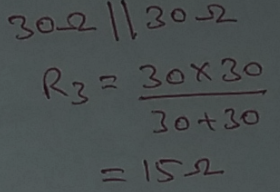 30Ω || 30Ω
R₃ = 30×30
30+30
= 15Ω